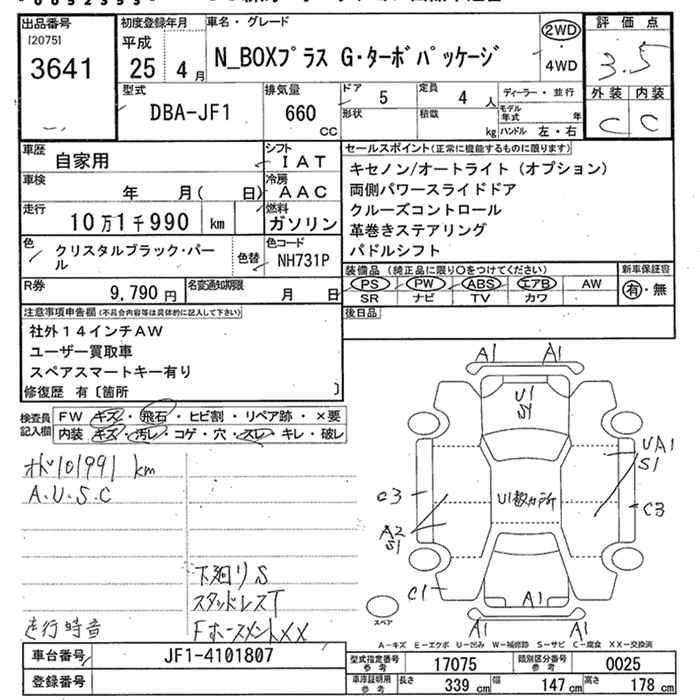 出品番号
[2075]
3641
初度登録年月
平成
25年 4月
車名・グレード
N_BOXプラス G・ターボパッケージ
2WD
・
4WD
評価点
3.5
外装 内装
C C
型式
DBA-JF1
排気量
660
cc
ドア 5
定員 4人
形状
積載 kg
ディーラー・並行
モデル年式 年
ハンドル 左・右
車歴
自家用
シフト
IAT
車検
年 月( 日)
冷房
AAC
走行
10万1千990 km
燃料
ガソリン
色
クリスタルブラック・パール
色替
色コード
NH731P
R券
9,790円
名変通知期限
月 日
セールスポイント(正常に機能するものに限ります)
キセノン/オートライト(オプション)
両側パワースライドドア
クルーズコントロール
革巻きステアリング
パドルシフト
装備品(純正品に限り○をつけてください)
PS PW ABS エアB AW
SR ナビ TV カワ
新車保証書
有・無
後日品
注意事項申告欄(不具合内容等は具体的に記入して下さい)
社外14インチAW
ユーザー買取車
スペアスマートキー有り
修復歴 有〔箇所 〕
検査員
記入欄
FW キズ・飛石・ヒビ割・リペア跡・×要
内装 キズ・汚レ・コゲ・穴・スレ・キレ・破レ
オド101991km
A.U.S.C
下廻りS
スタッドレスT
走行時音
A1 A1
U1
S1
UA1
S1
C3
U1数ヵ所
C3
A2
S1
C1
A1
A1 A1
スペア
A-キズ E-エクボ U-凹み W-補修跡 S-サビ C-腐食 XX-交換済
車台番号
JF1-4101807
登録番号
型式指定番号
参考
17075
類別区分番号
参考
0025
車庫証明用
参考
長さ 339 cm
幅 147 cm
高さ 178 cm